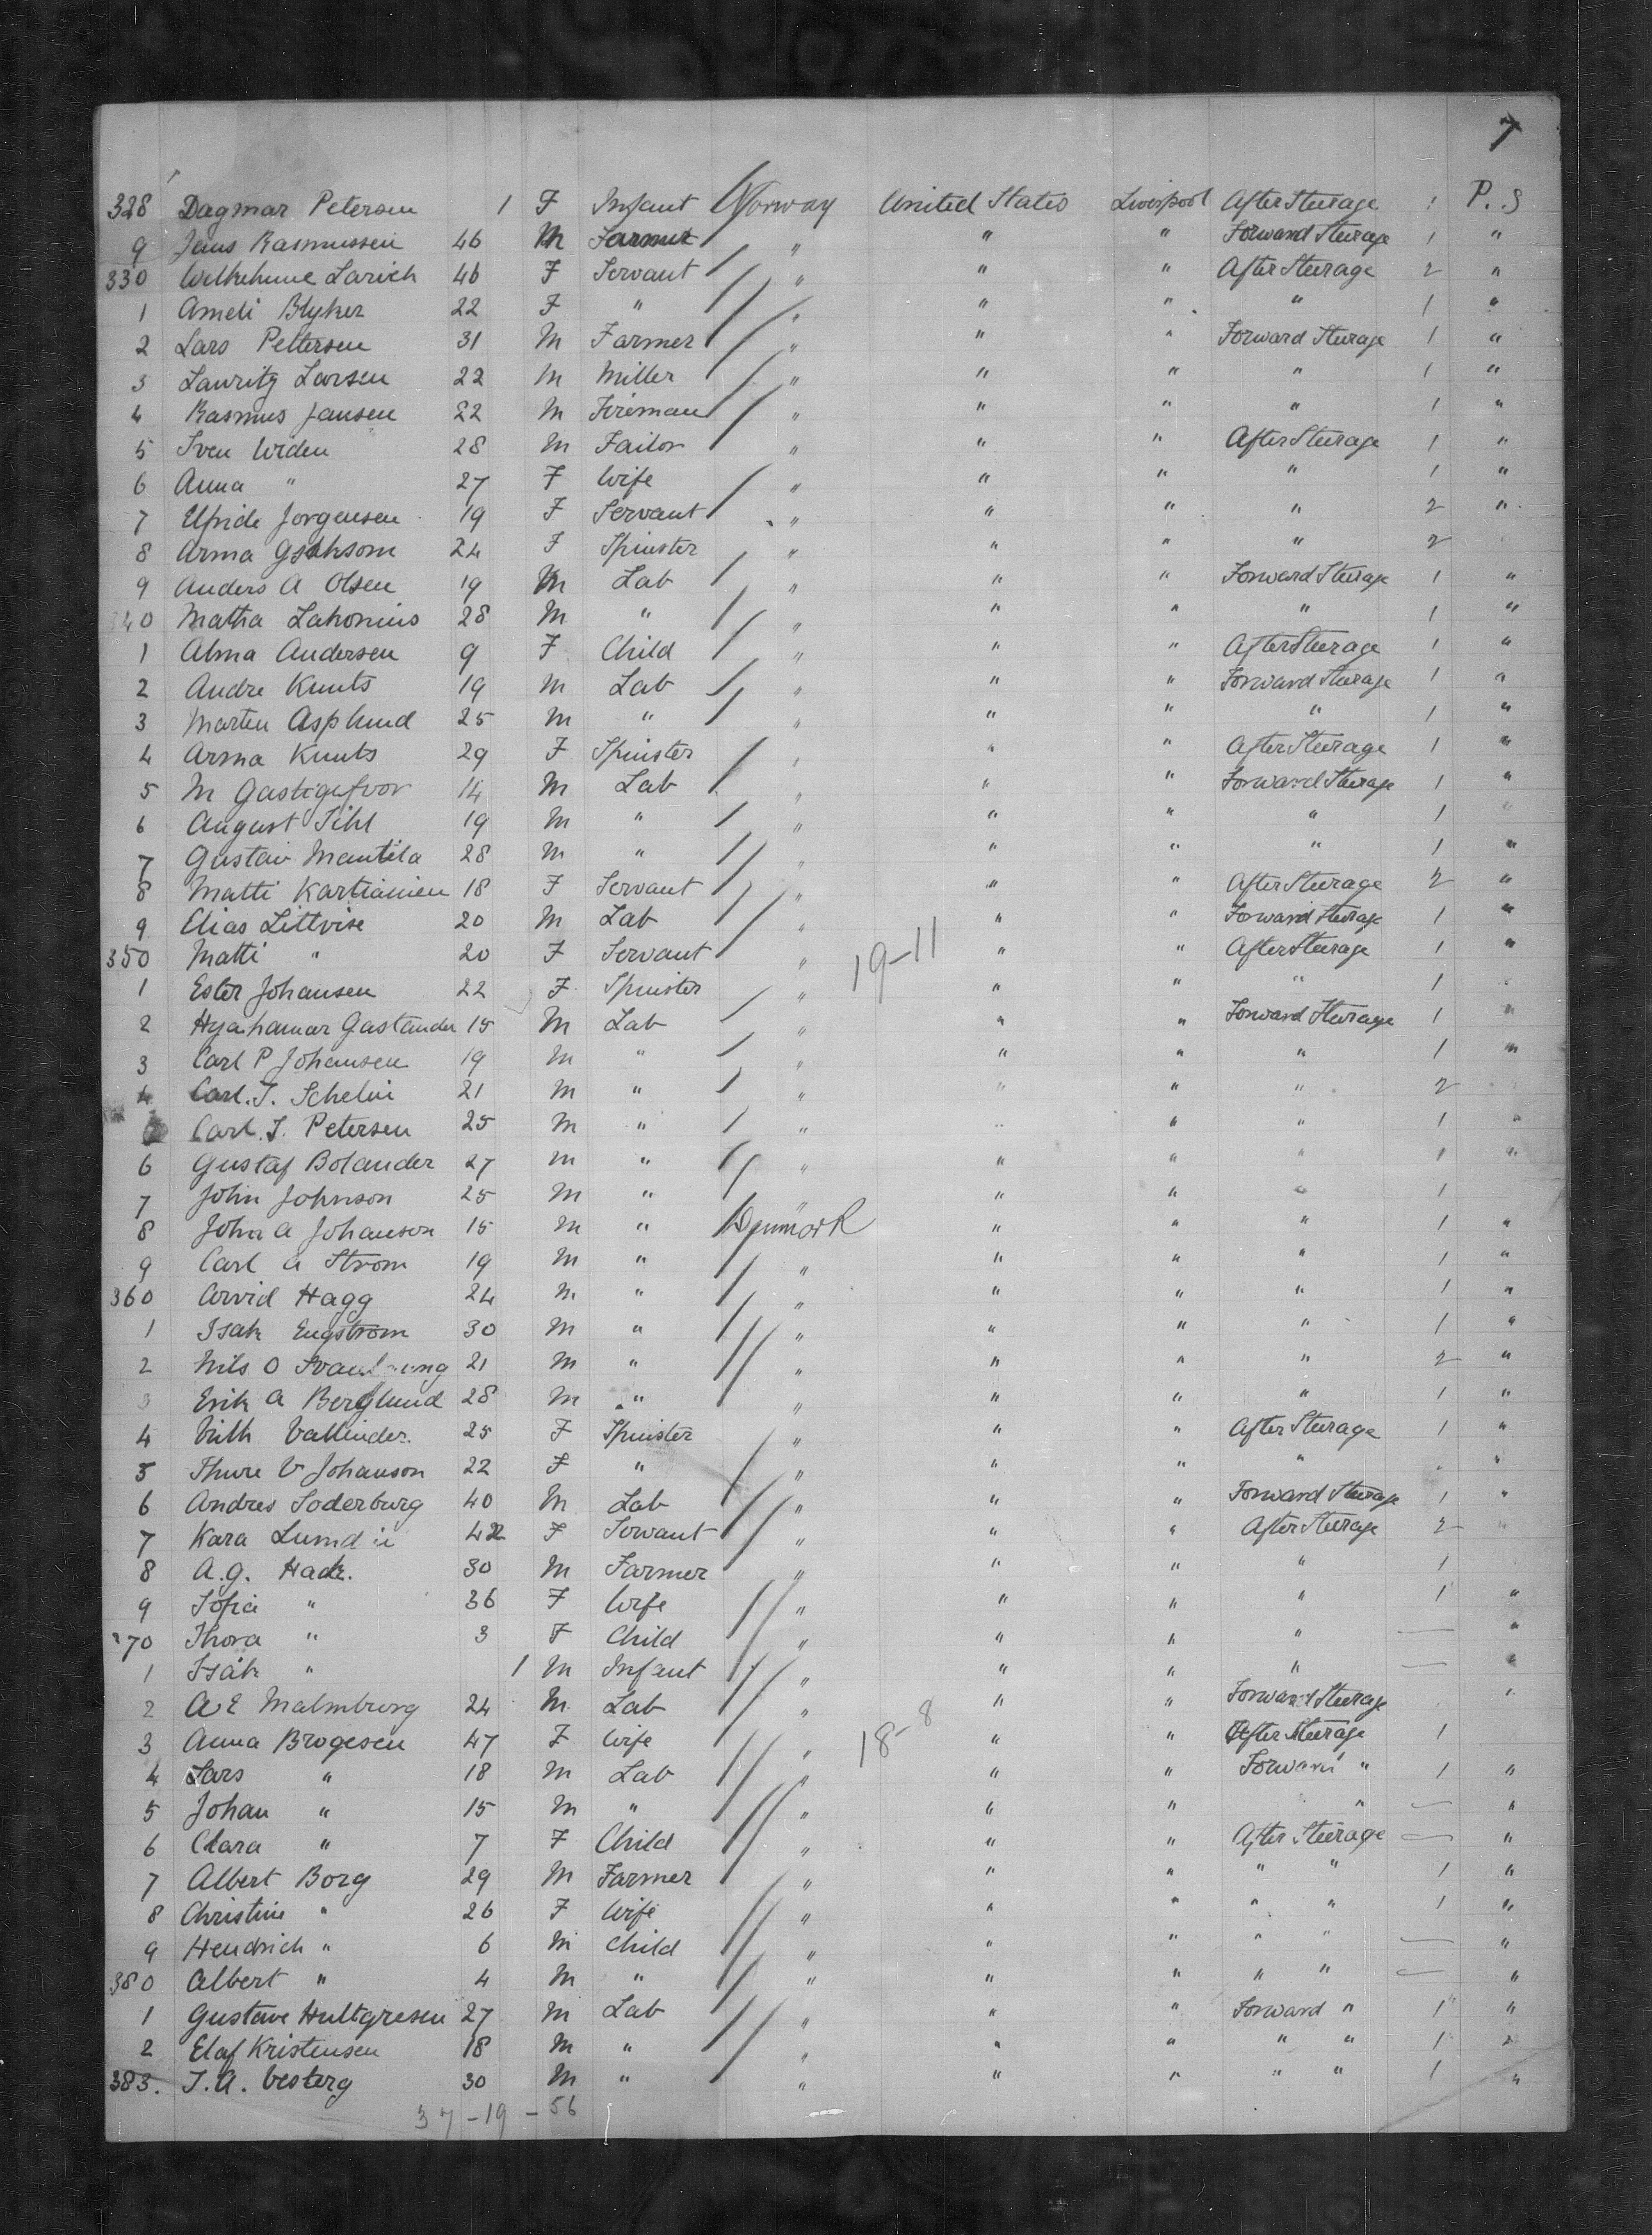 7
328 Dagmar Petersen 1 F Infant Norway United States Liverpool After Steerage 1 P. S
9 Jens Rasmussen 46 M Farmer " " " Forward Steerage 1 "
330 Larich 46 F Servant " " " After Steerage 2 "
1 Ameli Blyker 22 F " " " " " 1 "
2 Lars Pettersen 31 M Farmer " " " Forward Steerage 1 "
3 Lauritz Larsen 22 M Miller " " " " 1 "
4 Rasmus Jansen 22 M Fireman " " " " 1 "
5 Sven Widen 28 M Tailor " " " After Steerage 1 "
6 Anna " 27 F Wife " " " " 1 "
7 Elfride Jorgensen 19 F Servant " " " " 2 "
8 Arma 24 F Spinster " " " " 2
9 Anders A Olsen 19 M Lab " " " Forward Steerage 1 "
340 Matha Lakonius 28 M " " " " " 1 "
1 Alma Andersen 9 F Child " " " After Steerage 1 "
2 Andre Knuts 19 M Lab " " " Forward Steerage 1 "
3 Marten Asplund 25 M " " " " " 1 "
4 Arma Knuts 29 F Spinster " " " After Steerage 1 "
5 M 14 M Lab " " " Forward Steerage 1 "
6 August Sihl 19 M " " " " " 1 "
7 Gustav Mantila 28 M " " " " " 1 "
8 Matti Kartiainen 18 F Servant " " " After Steerage 2 "
9 Elias Littvise 20 M Lab " " " Forward Steerage 1 "
350 Matti " 20 F Servant " 19-11 " " After Steerage 1 "
1 Ester Johansen 22 F Spinster " " " " 1
2 Gastander 15 M Lab " " " Forward Steerage 1 "
3 Carl P Johansen 19 M " " " " " 1 "
4 Carl. J. Schelin 21 M " " " " " 2
Carl. J. Petersen 25 M " " " " " 1 "
6 Gustaf Bolander 27 M " " " " " 1 "
7 John Johnson 25 M " " " " " 1
8 John A Johanson 15 M " Denmark " " " 1 "
9 Carl A Strom 19 M " " " " " 1 "
360 Arvid Hagg 24 M " " " " " 1 "
1 Isak Engstrom 30 M " " " " " 1 "
2 Nils O 21 M " " " " " 2 "
3 Erik A Berglund 28 M " " " " " 1 "
4 Vallinder. 25 F Spinster " " " After Steerage 1 "
5 Thure V Johanson 22 F " " " " " "
6 Andres Soderburg 40 M Lab " " " Forward Steerage 1 "
7 Kara Lumdii 42 F Servant " " " After Steerage 2 "
8 A.G. Hack. 30 M Farmer " " " " 1
9 Sofia " 36 F Wife " " " " 1 "
370 Thora " 3 F Child " " " " — "
1 Isak " 1 M Infant " " " " — "
2 A E Malmburg 24 M Lab " " " Forward Steerage "
3 Anna Brogesen 47 F Wife " 18-8 " " After Steerage 1
4 Lars " 18 M Lab " " " Forward " 1 "
5 Johan " 15 M " " " " " — "
6 Clara " 7 F Child " " " After Steerage — "
7 Albert Borg 29 M Farmer " " " " " 1 "
8 Christine " 26 F Wife " " " " " 1 "
9 Hendrich " 6 M Child " " " " " — "
380 Albert " 4 M " " " " " " — "
1 Gustave Hultgresen 27 M Lab " " " Forward " 1 "
2 Elaf Kristensen 18 M " " " " " " 1 "
383. J. A. Vesterg 30 M " " " " " " 1 "
37-19-56